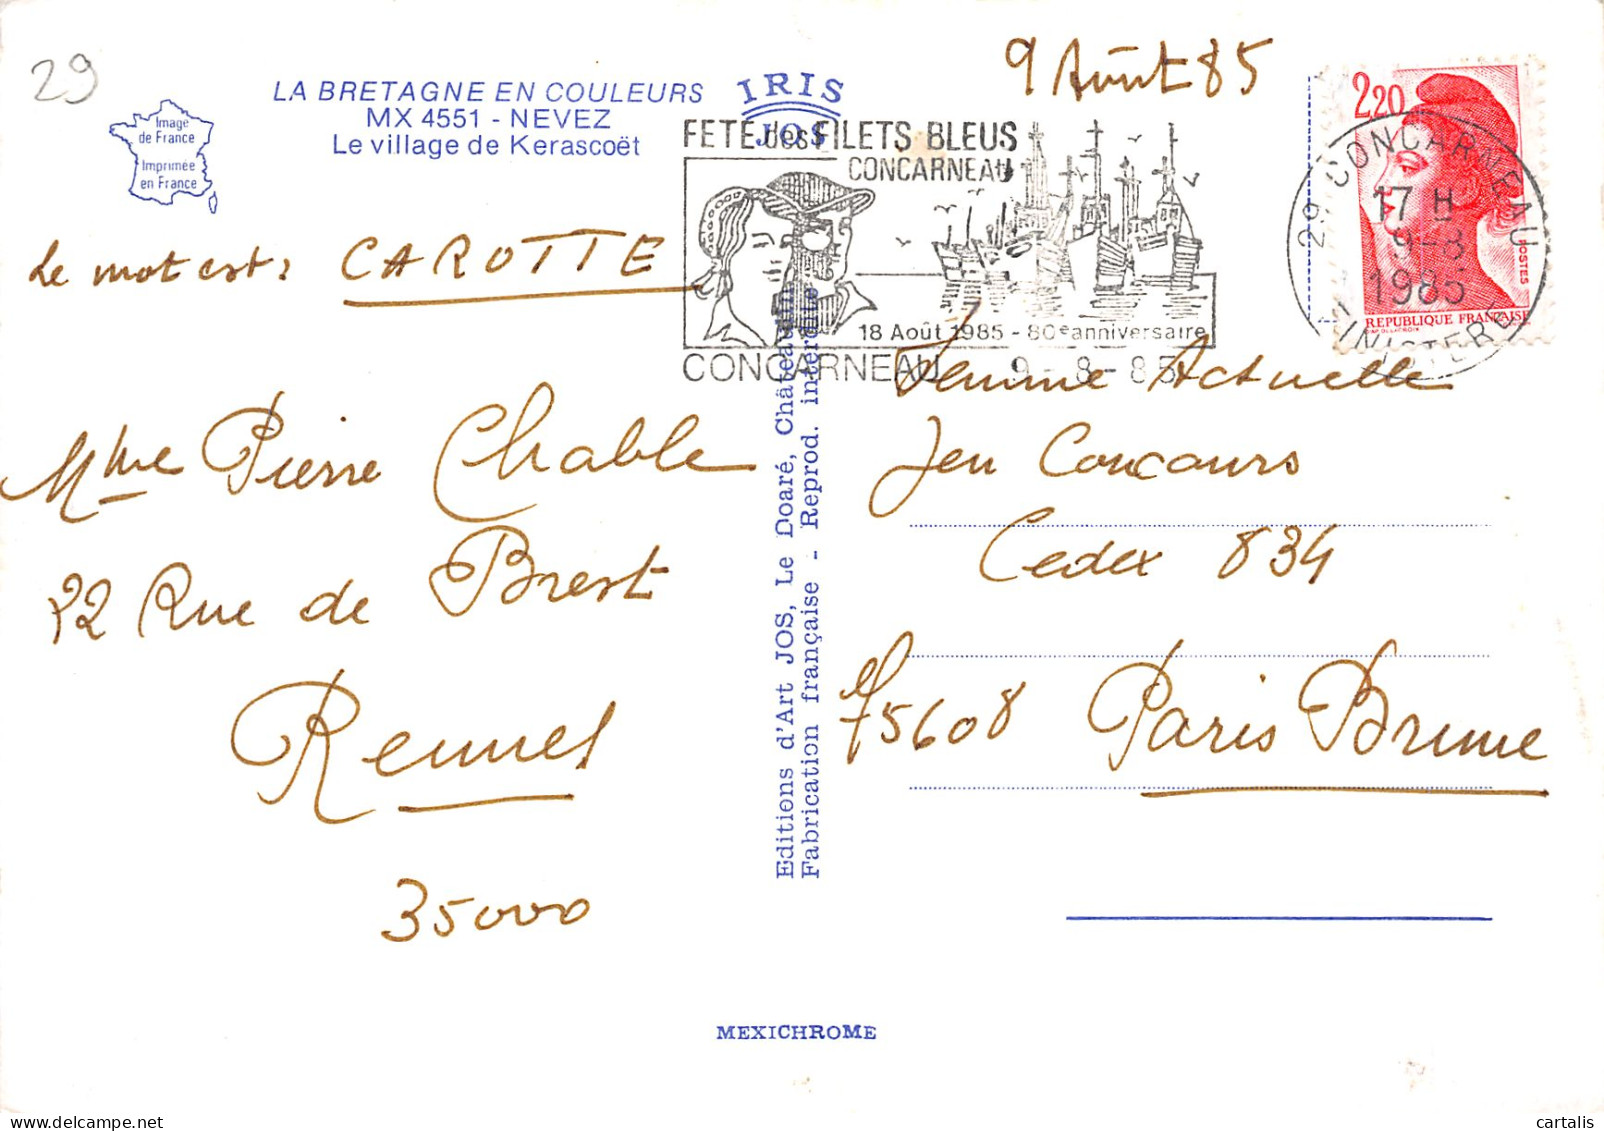 29
9 Août 85
Image
de France
Imprimée
en France
LA BRETAGNE EN COULEURS
MX 4551 - NEVEZ
Le village de Kerascoët
IRIS
JOS
FETE des FILETS BLEUS
CONCARNEAU
18 Août 1985 - 80e anniversaire
CONCARNEAU 9-8-85
2,20
POSTES
REPUBLIQUE FRANÇAISE
29 CONCARNEAU
17 H
9-8
1985
FINISTERE
Le mot est : CAROTTE
Mme Pierre Chable
22 Rue de Brest
Rennes
35000
Editions d'Art JOS, Le Doaré, Châteaulin
Fabrication française - Reprod. interdite
Femme Actuelle
Jeu Concours
Cedex 834
75608 Paris Brune
MEXICHROME
cartalis